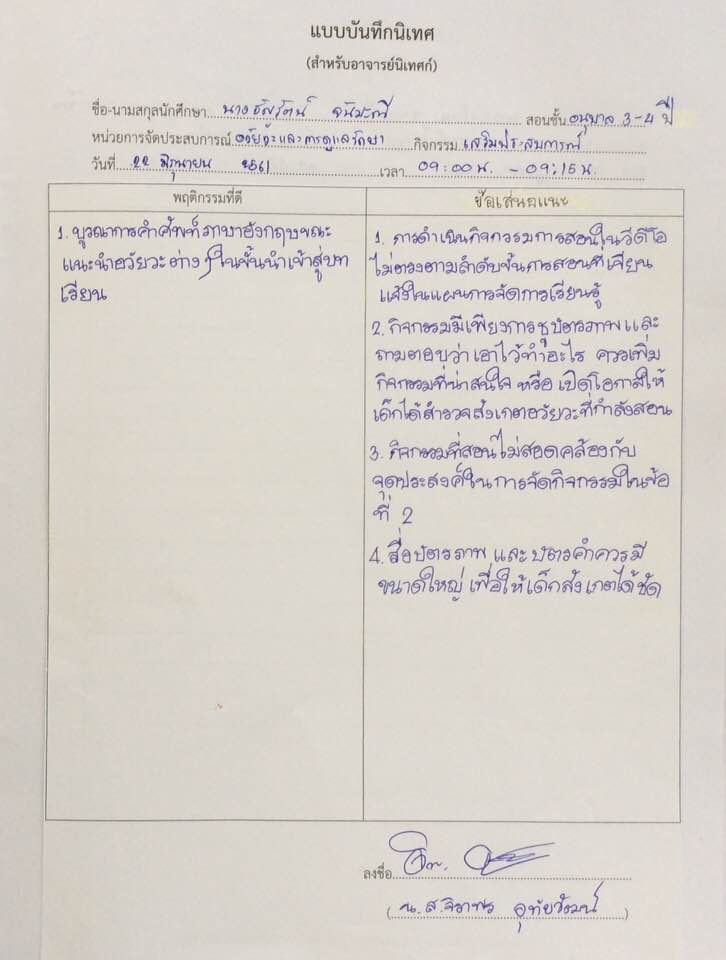 แบบบันทึกนิเทศ
(สำหรับอาจารย์นิเทศก์)
ชื่อ-นามสกุลนักศึกษา นางธัญรัตน์ จันมะณี สอนชั้น อนุบาล 3-4 ปี
หน่วยการจัดประสบการณ์ อวัยวะและการดูแลรักษา กิจกรรม เสริมประสบการณ์
วันที่ 22 มิถุนายน 2561 เวลา 09:00 น. - 09:15 น.
พฤติกรรมที่ดี
1. บูรณาการคำศัพท์ภาษาอังกฤษขณะ
แนะนำอวัยวะต่าง ๆ ในขั้นนำเข้าสู่บท
เรียน
ข้อเสนอแนะ
1. การดำเนินกิจกรรมการสอนในวีดีโอ
ไม่ตรงตามลำดับขั้นการสอนที่เขียน
แจ้งในแผนการจัดการเรียนรู้
2. กิจกรรมมีเพียงการชูบัตรภาพและ
ถามตอบว่าเอาไว้ทำอะไร ควรเพิ่ม
กิจกรรมที่น่าสนใจ หรือ เปิดโอกาสให้
เด็กได้สำรวจสังเกตอวัยวะที่กำลังสอน
3. กิจกรรมที่สอนไม่สอดคล้องกับ
จุดประสงค์ในการจัดกิจกรรมในข้อ
ที่ 2
4. สื่อบัตรภาพ และบัตรคำควรมี
ขนาดใหญ่ เพื่อให้เด็กสังเกตได้ชัด
ลงชื่อ
(น.ส.จิราพร อุทัยวัฒน์)